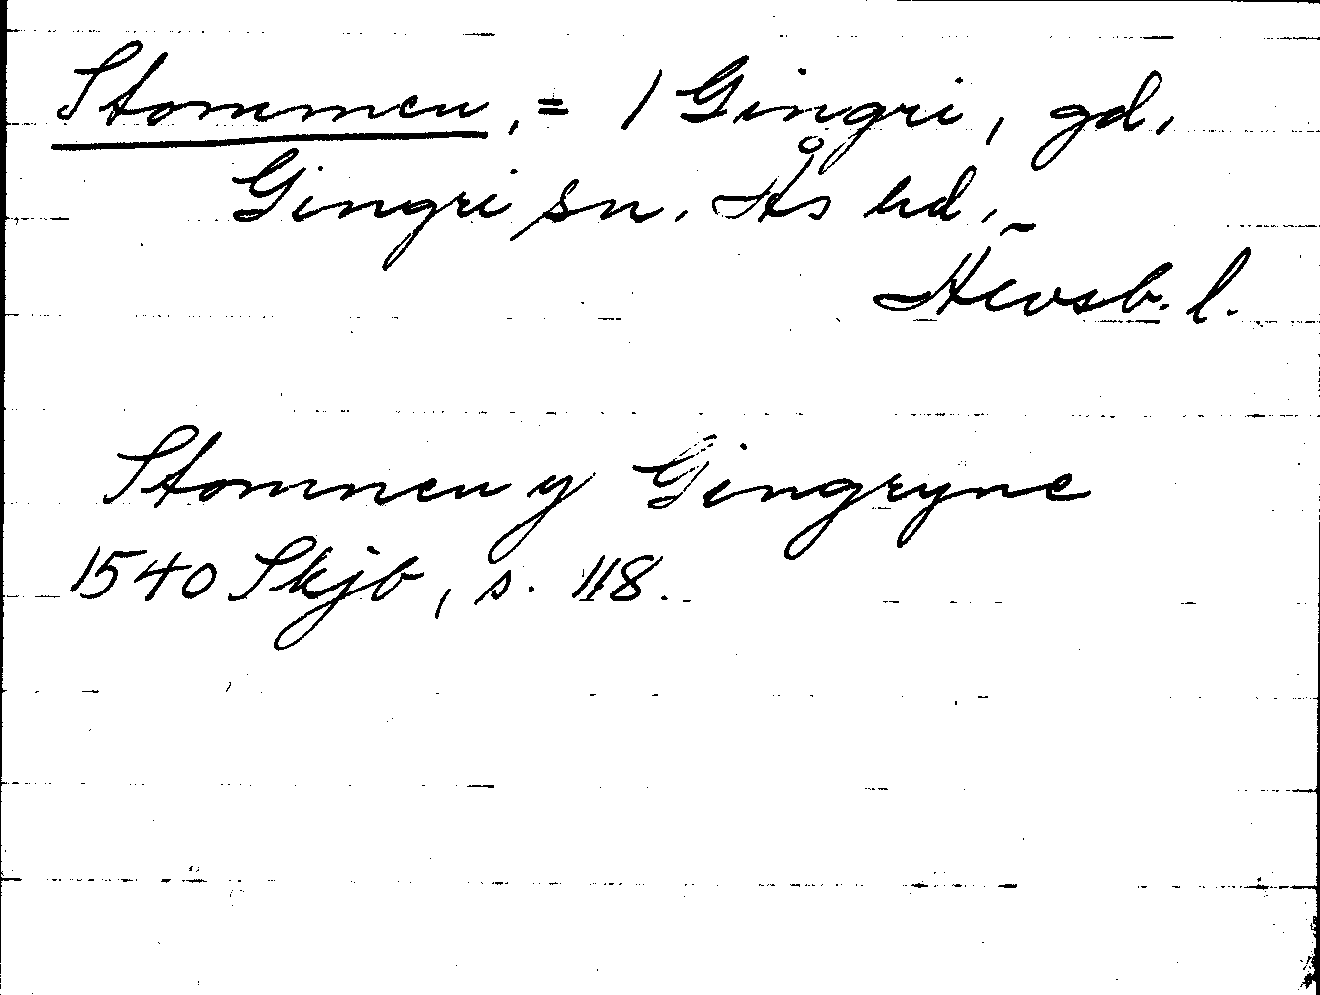 Stommen, = 1 Gingri, gd,
Gingri sn. Ås hd,
Älvsb. l.
Stommen y Gingryne
1540 Skjb, s. 118.